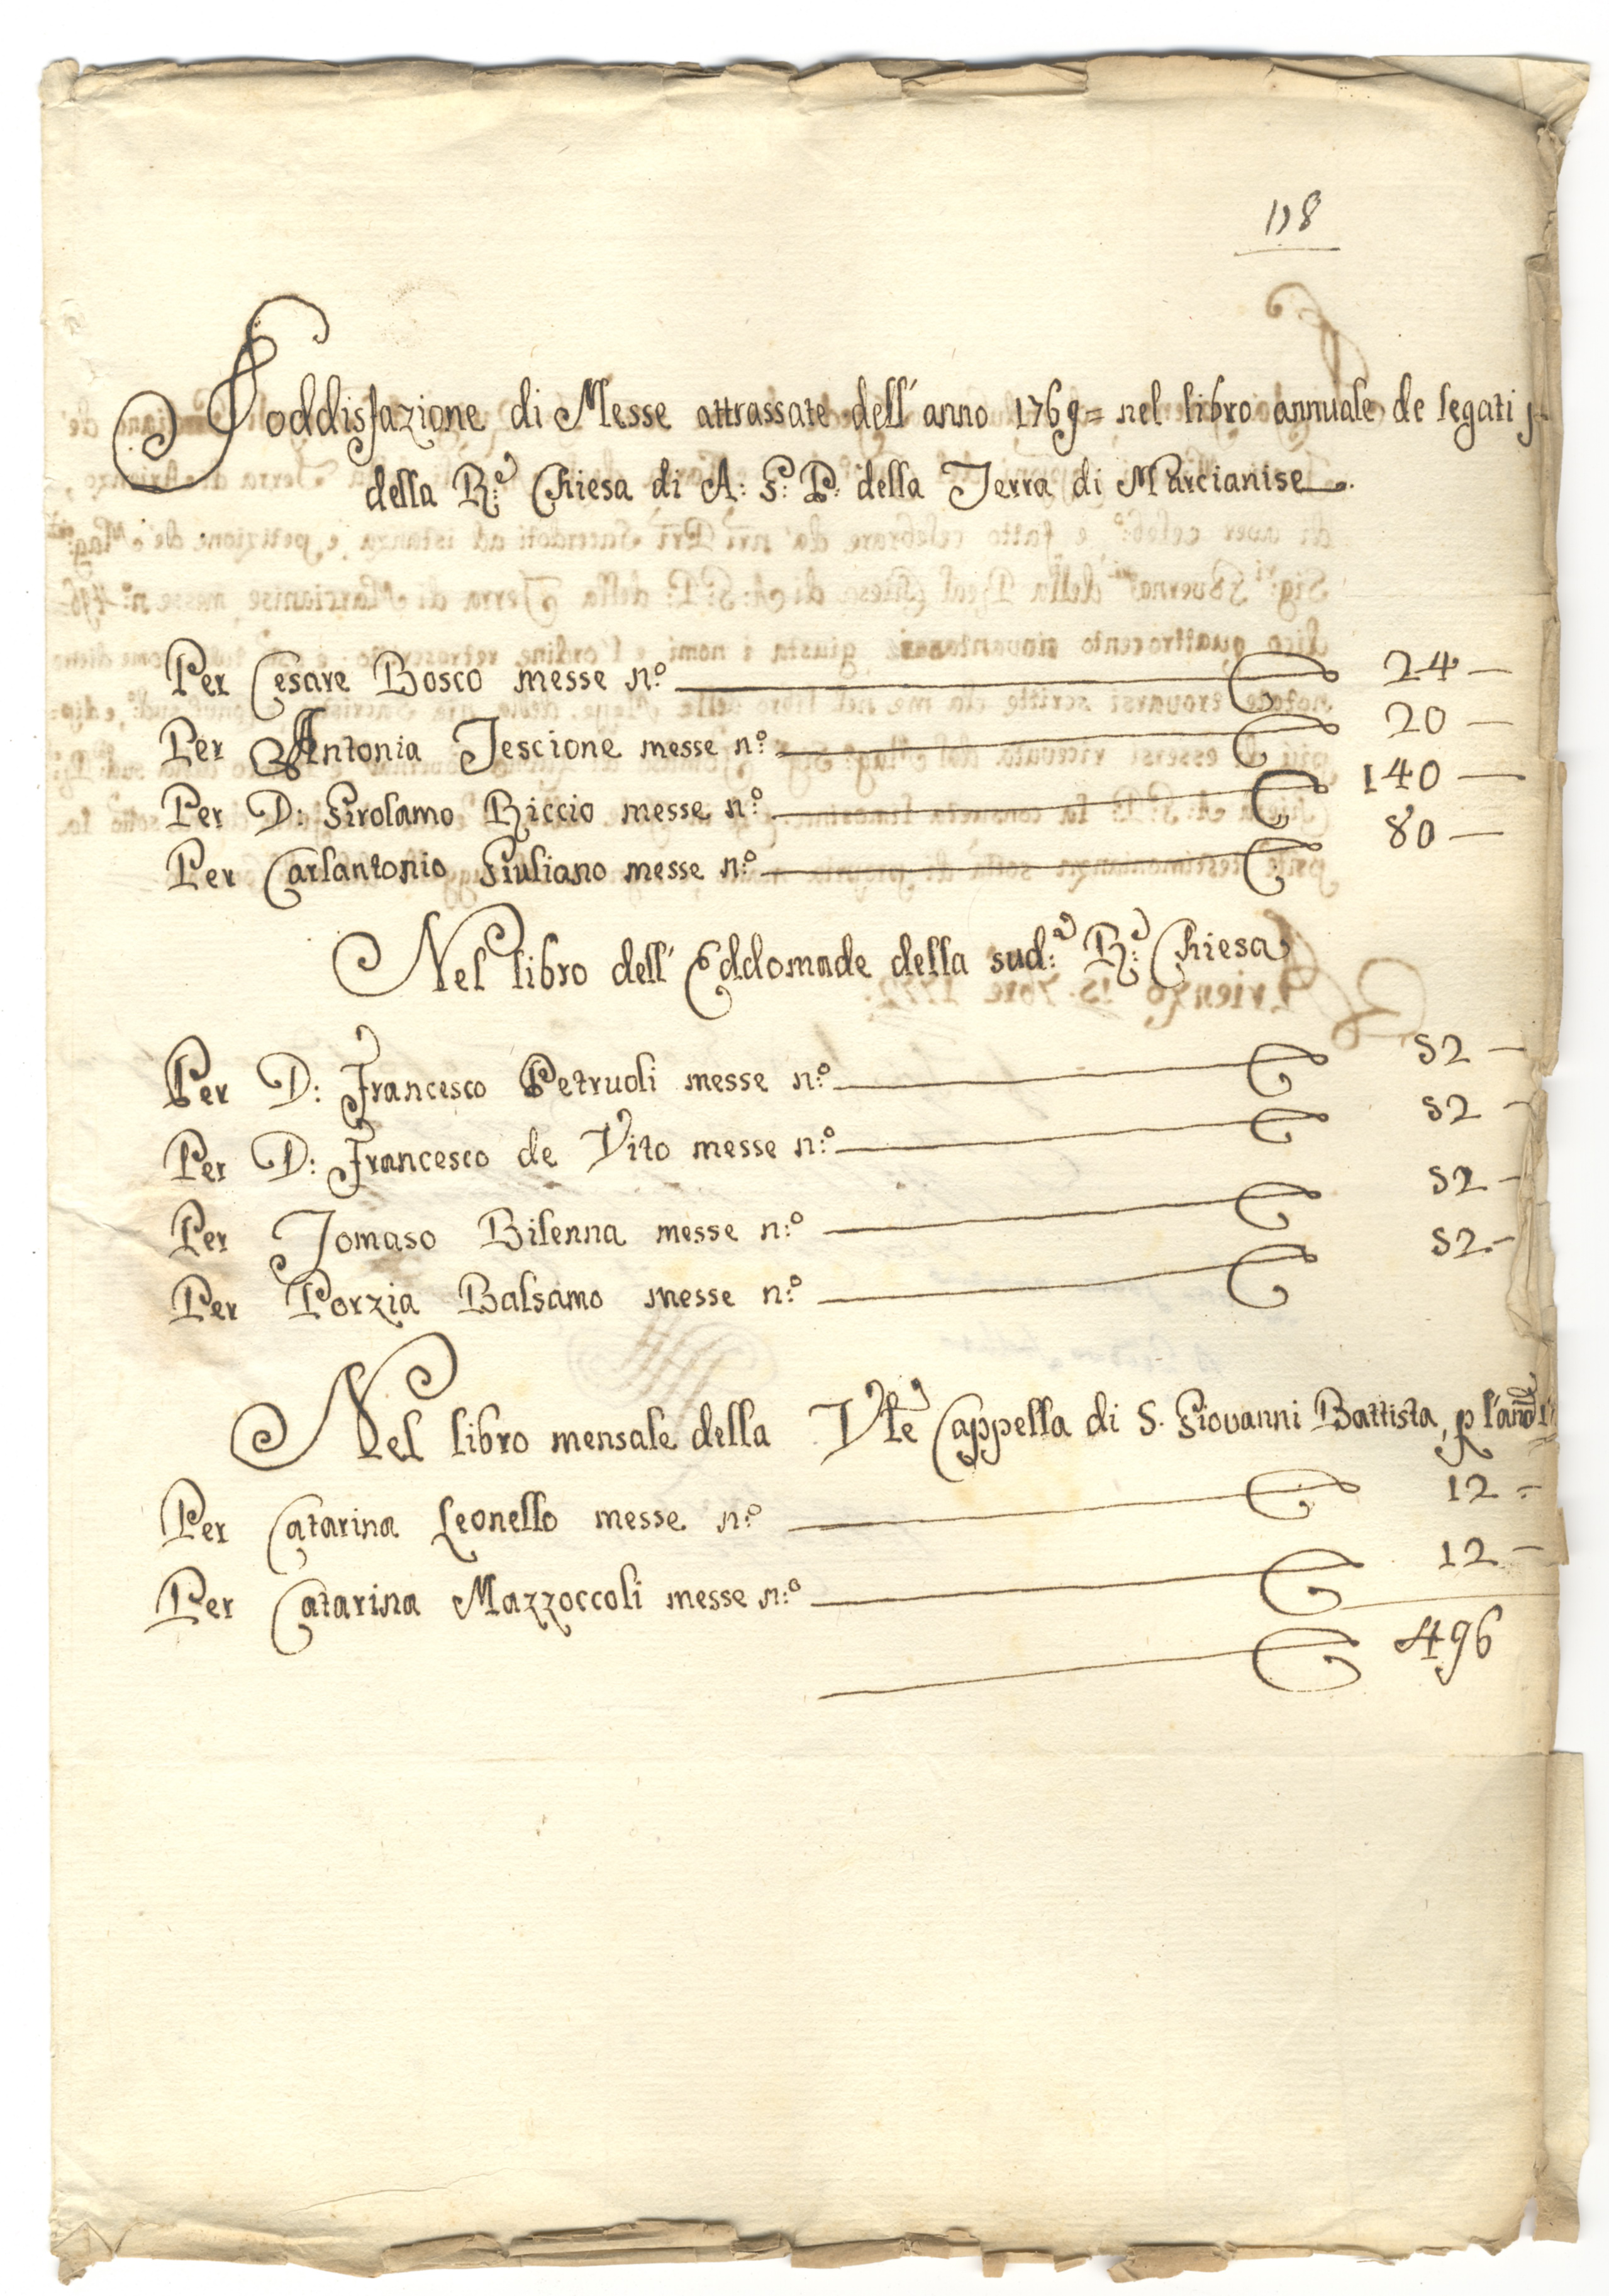 118
Soddisfazione di Messe attrassate dell' anno 1769= nel libro annuale de legati
della R:e Chiesa di A: G: P: della Terra di Marcianise
Per Cesare Bosco messe n:o 24 —
Per Antonia Tescione messe n:o 20 —
Per D: Girolamo Riccio messe n:o 140 —
Per Carlantonio Giuliano messe n:o 80 —
Nel libro dell' Eddomade della sud:a R:e Chiesa
Per D: Francesco Petruoli messe n:o 52 —
Per D: Francesco de Vito messe n:o 52 —
Per Tomaso Bilenna messe n:o 52 —
Per Porzia Balsamo messe n:o 52.—
Nel libro mensale della Vle Cappella di S. Giovanni Battista, p l'anno
Per Catarina Leonello messe n:o 12 =
Per Catarina Mazzoccoli messe n:o 12 —
496